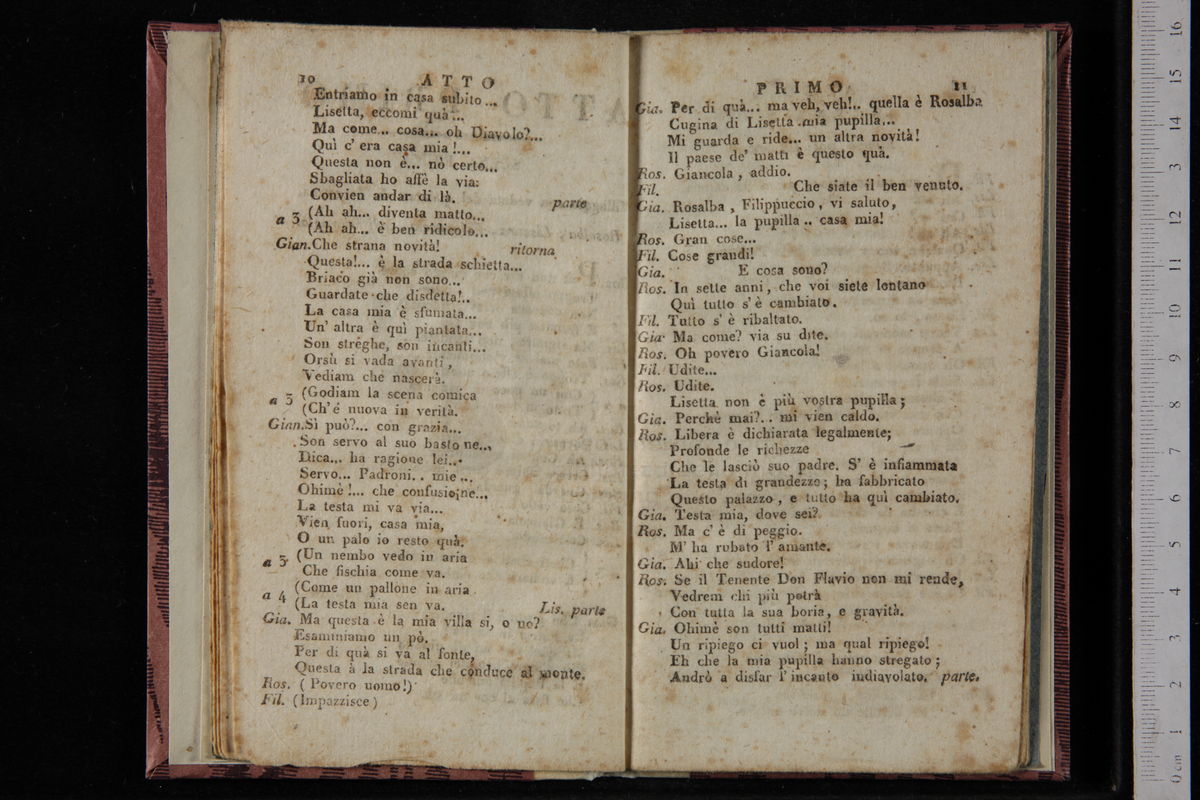 10 ATTO
Entriamo in casa subito...
Lisetta, eccomi quà...
Ma come.. cosa... oh Diavolo?...
Quì c' era casa mia!...
Questa non è... nò certo...
Sbagliata ho affè la via:
Convien andar di là. parte
a 3 (Ah ah... diventa matto...
(Ah ah... è ben ridicolo...
Gian.Che strana novità! ritorna
Questa!... è la strada schietta...
Briaco già non sono...
Guardate che disdetta!..
La casa mia è sfumata...
Un' altra è quì piantata...
Son streghe, son incanti...
Orsù si vada avanti,
Vediam che nascerà.
a 3 (Godiam la scena comica
(Ch' é nuova in verità.
Gian.Sì può?... con grazia...
Son servo al suo bastone...
Dica... ha ragione lei...
Servo... Padroni.. mie...
Ohimè!... che confusione...
La testa mi va via...
Vien fuori, casa mia,
O un palo io resto quà.
a 3 (Un nembo vedo in aria
Che fischia come va.
a 4 (Come un pallone in aria
(La testa mia sen va. Lis. parte
Gia. Ma questa è la mia villa si, o no?
Esaminiamo un pò.
Per di quà si va al fonte,
Questa à la strada che conduce al monte.
Ros. (Povero uomo!)
Fil. (Impazzisce)
PRIMO 11
Gia. Per di quà... ma veh, veh!.. quella è Rosalba
Cugina di Lisetta mia pupilla...
Mi guarda e ride... un altra novità!
Il paese de' matti è questo quà.
Ros. Giancola, addio.
Fil. Che siate il ben venuto.
Gia. Rosalba, Filippuccio, vi saluto,
Lisetta... la pupilla.. casa mia!
Ros. Gran cose...
Fil. Cose grandi!
Gia. E cosa sono?
Ros. In sette anni, che voi siete lontano
Quì tutto s' è cambiato.
Fil. Tutto s' è ribaltato.
Gia. Ma come? via su dite.
Ros. Oh povero Giancola!
Fil. Udite...
Ros. Udite.
Lisetta non è più vostra pupilla;
Gia. Perchè mai?.. mi vien caldo.
Ros. Libera è dichiarata legalmente;
Profonde le richezze
Che le lasciò suo padre. S' è infiammata
La testa di grandezze; ha fabbricato
Questo palazzo, e tutto ha quì cambiato.
Gia. Testa mia, dove sei?
Ros. Ma c' è di peggio.
M' ha rubato l' amante.
Gia. Ahi che sudore!
Ros. Se il Tenente Don Flavio non mi rende,
Vedrem chi più potrà
Con tutta la sua boria, e gravità.
Gia. Ohimè son tutti matti!
Un ripiego ci vuol; ma qual ripiego!
Eh che la mia pupilla hanno stregato;
Andrò a disfar l' incanto indiavolato. parte.
0 cm 1 2 3 4 5 6 7 8 9 10 11 12 13 14 15 16